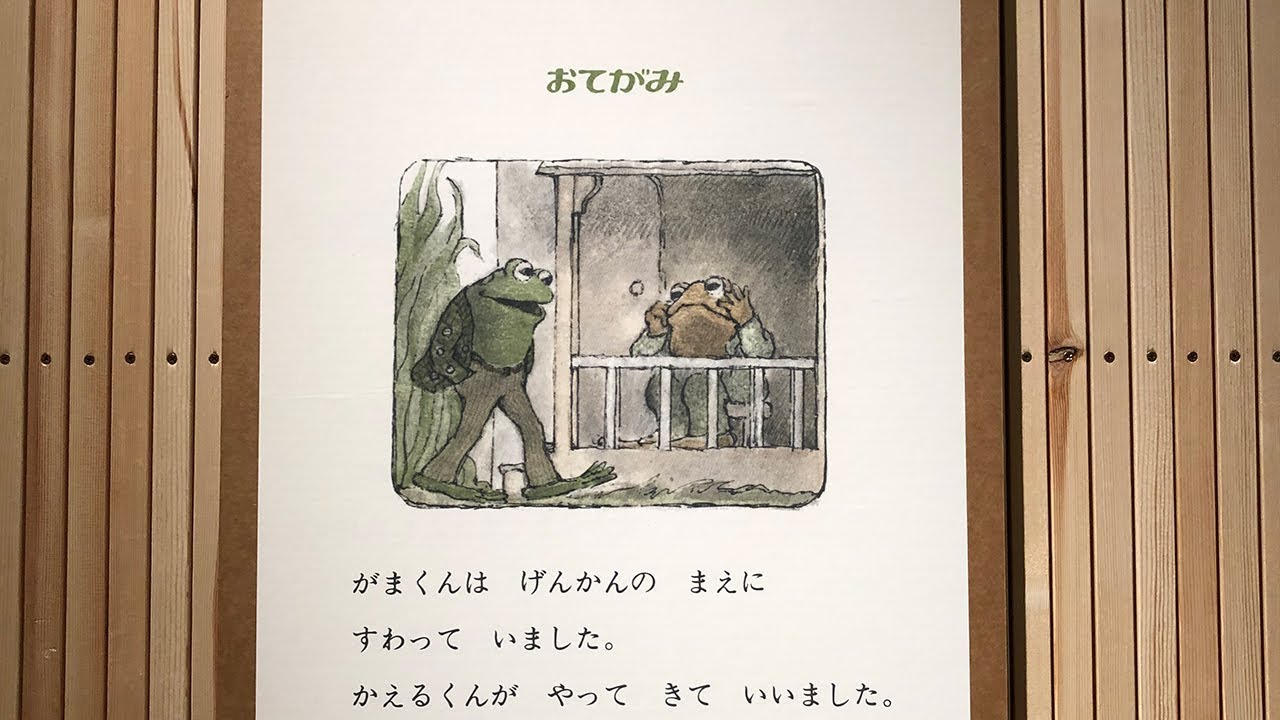 おてがみ
がまくんは　げんかんの　まえに
すわって　いました。
かえるくんが　やって　きて　いいました。